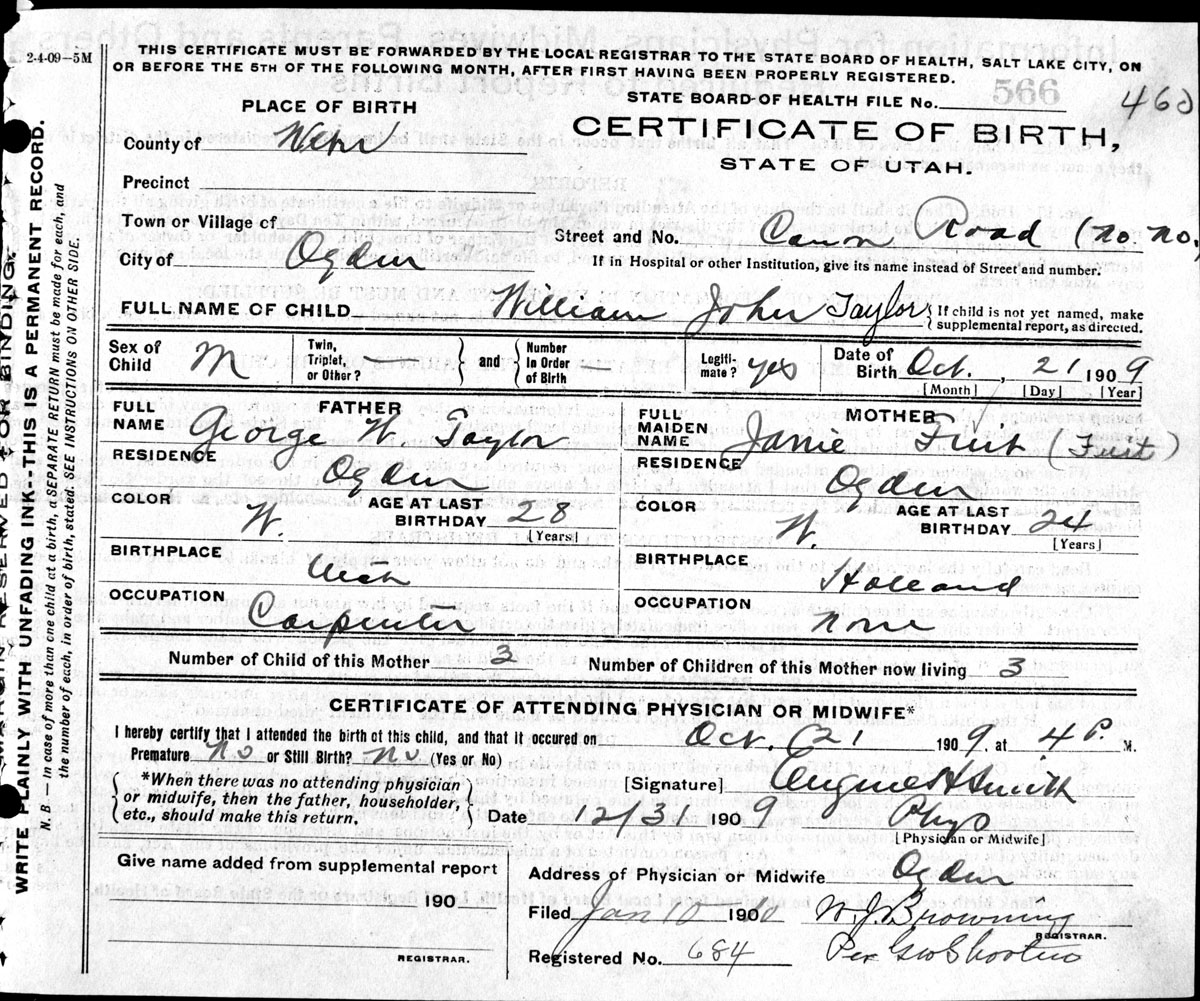 2-4-09—5M
THIS CERTIFICATE MUST BE FORWARDED BY THE LOCAL REGISTRAR TO THE STATE BOARD OF HEALTH, SALT LAKE CITY, ON
OR BEFORE THE 5TH OF THE FOLLOWING MONTH, AFTER FIRST HAVING BEEN PROPERLY REGISTERED.
STATE BOARD OF HEALTH FILE No. 566
PLACE OF BIRTH
CERTIFICATE OF BIRTH,
STATE OF UTAH.
County of
Precinct
Town or Village of
Street and No. Canon Road (No. No.
City of Ogden
If in Hospital or other Institution, give its name instead of Street and number.
FULL NAME OF CHILD William John Taylor { If child is not yet named, make
supplemental report, as directed.
Sex of Child M Twin, Triplet, or Other? and Number In Order of Birth Legiti-mate? yes Date of Birth Oct. , 21 1909
[Month] [Day] [Year]
FATHER
FULL NAME George W. Taylor
RESIDENCE Ogden
COLOR W. AGE AT LAST BIRTHDAY 28
[Years]
BIRTHPLACE Utah
OCCUPATION Carpenter
MOTHER
FULL MAIDEN NAME Janie
RESIDENCE Ogden
COLOR W. AGE AT LAST BIRTHDAY 24
[Years]
BIRTHPLACE Holland
OCCUPATION None
Number of Child of this Mother 3 Number of Children of this Mother now living 3
CERTIFICATE OF ATTENDING PHYSICIAN OR MIDWIFE*
I hereby certify that I attended the birth of this child, and that it occured on Oct. 21 1909, at 4 P. M.
Premature No or Still Birth? No (Yes or No)
*When there was no attending physician
or midwife, then the father, householder,
etc., should make this return.
[Signature] Smith
Date 12/3 1909 Phys
[Physician or Midwife]
Give name added from supplemental report
190
REGISTRAR.
Address of Physician or Midwife Ogden
Filed Jan 10 190 W. J. Browning
REGISTRAR.
Registered No. 684 Per
MARGIN RESERVED FOR BINDING.
WRITE PLAINLY WITH UNFADING INK—THIS IS A PERMANENT RECORD.
N. B.—In case of more than one child at a birth, a SEPARATE RETURN must be made for each, and
the number of each, in order of birth, stated. SEE INSTRUCTIONS ON OTHER SIDE.